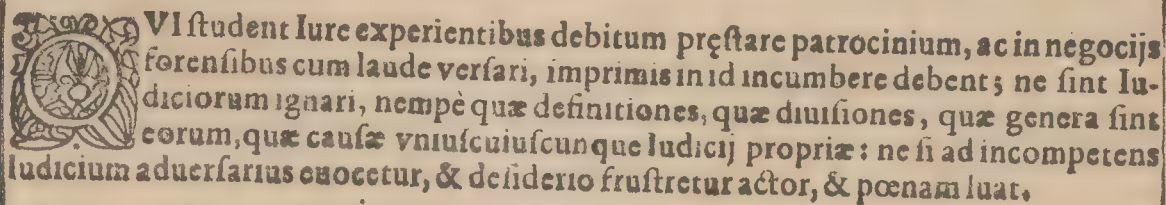 QVI ſtudent Iure experientibus debitum pręſtare patrocinium, ac in negocijs
forenſibus cum laude verſari, imprimis in id incumbere debent; ne ſint Iu-
diciorum ignari, nempè quæ definitiones, quæ diuiſiones, quæ genera ſint
eorum, quæ cauſæ vniuſcuiuſcunque Iudicij propriæ: ne ſi ad incompetens
Iudicium aduerſarius euocetur, & deſiderio fruſtretur actor, & pœnam luat.